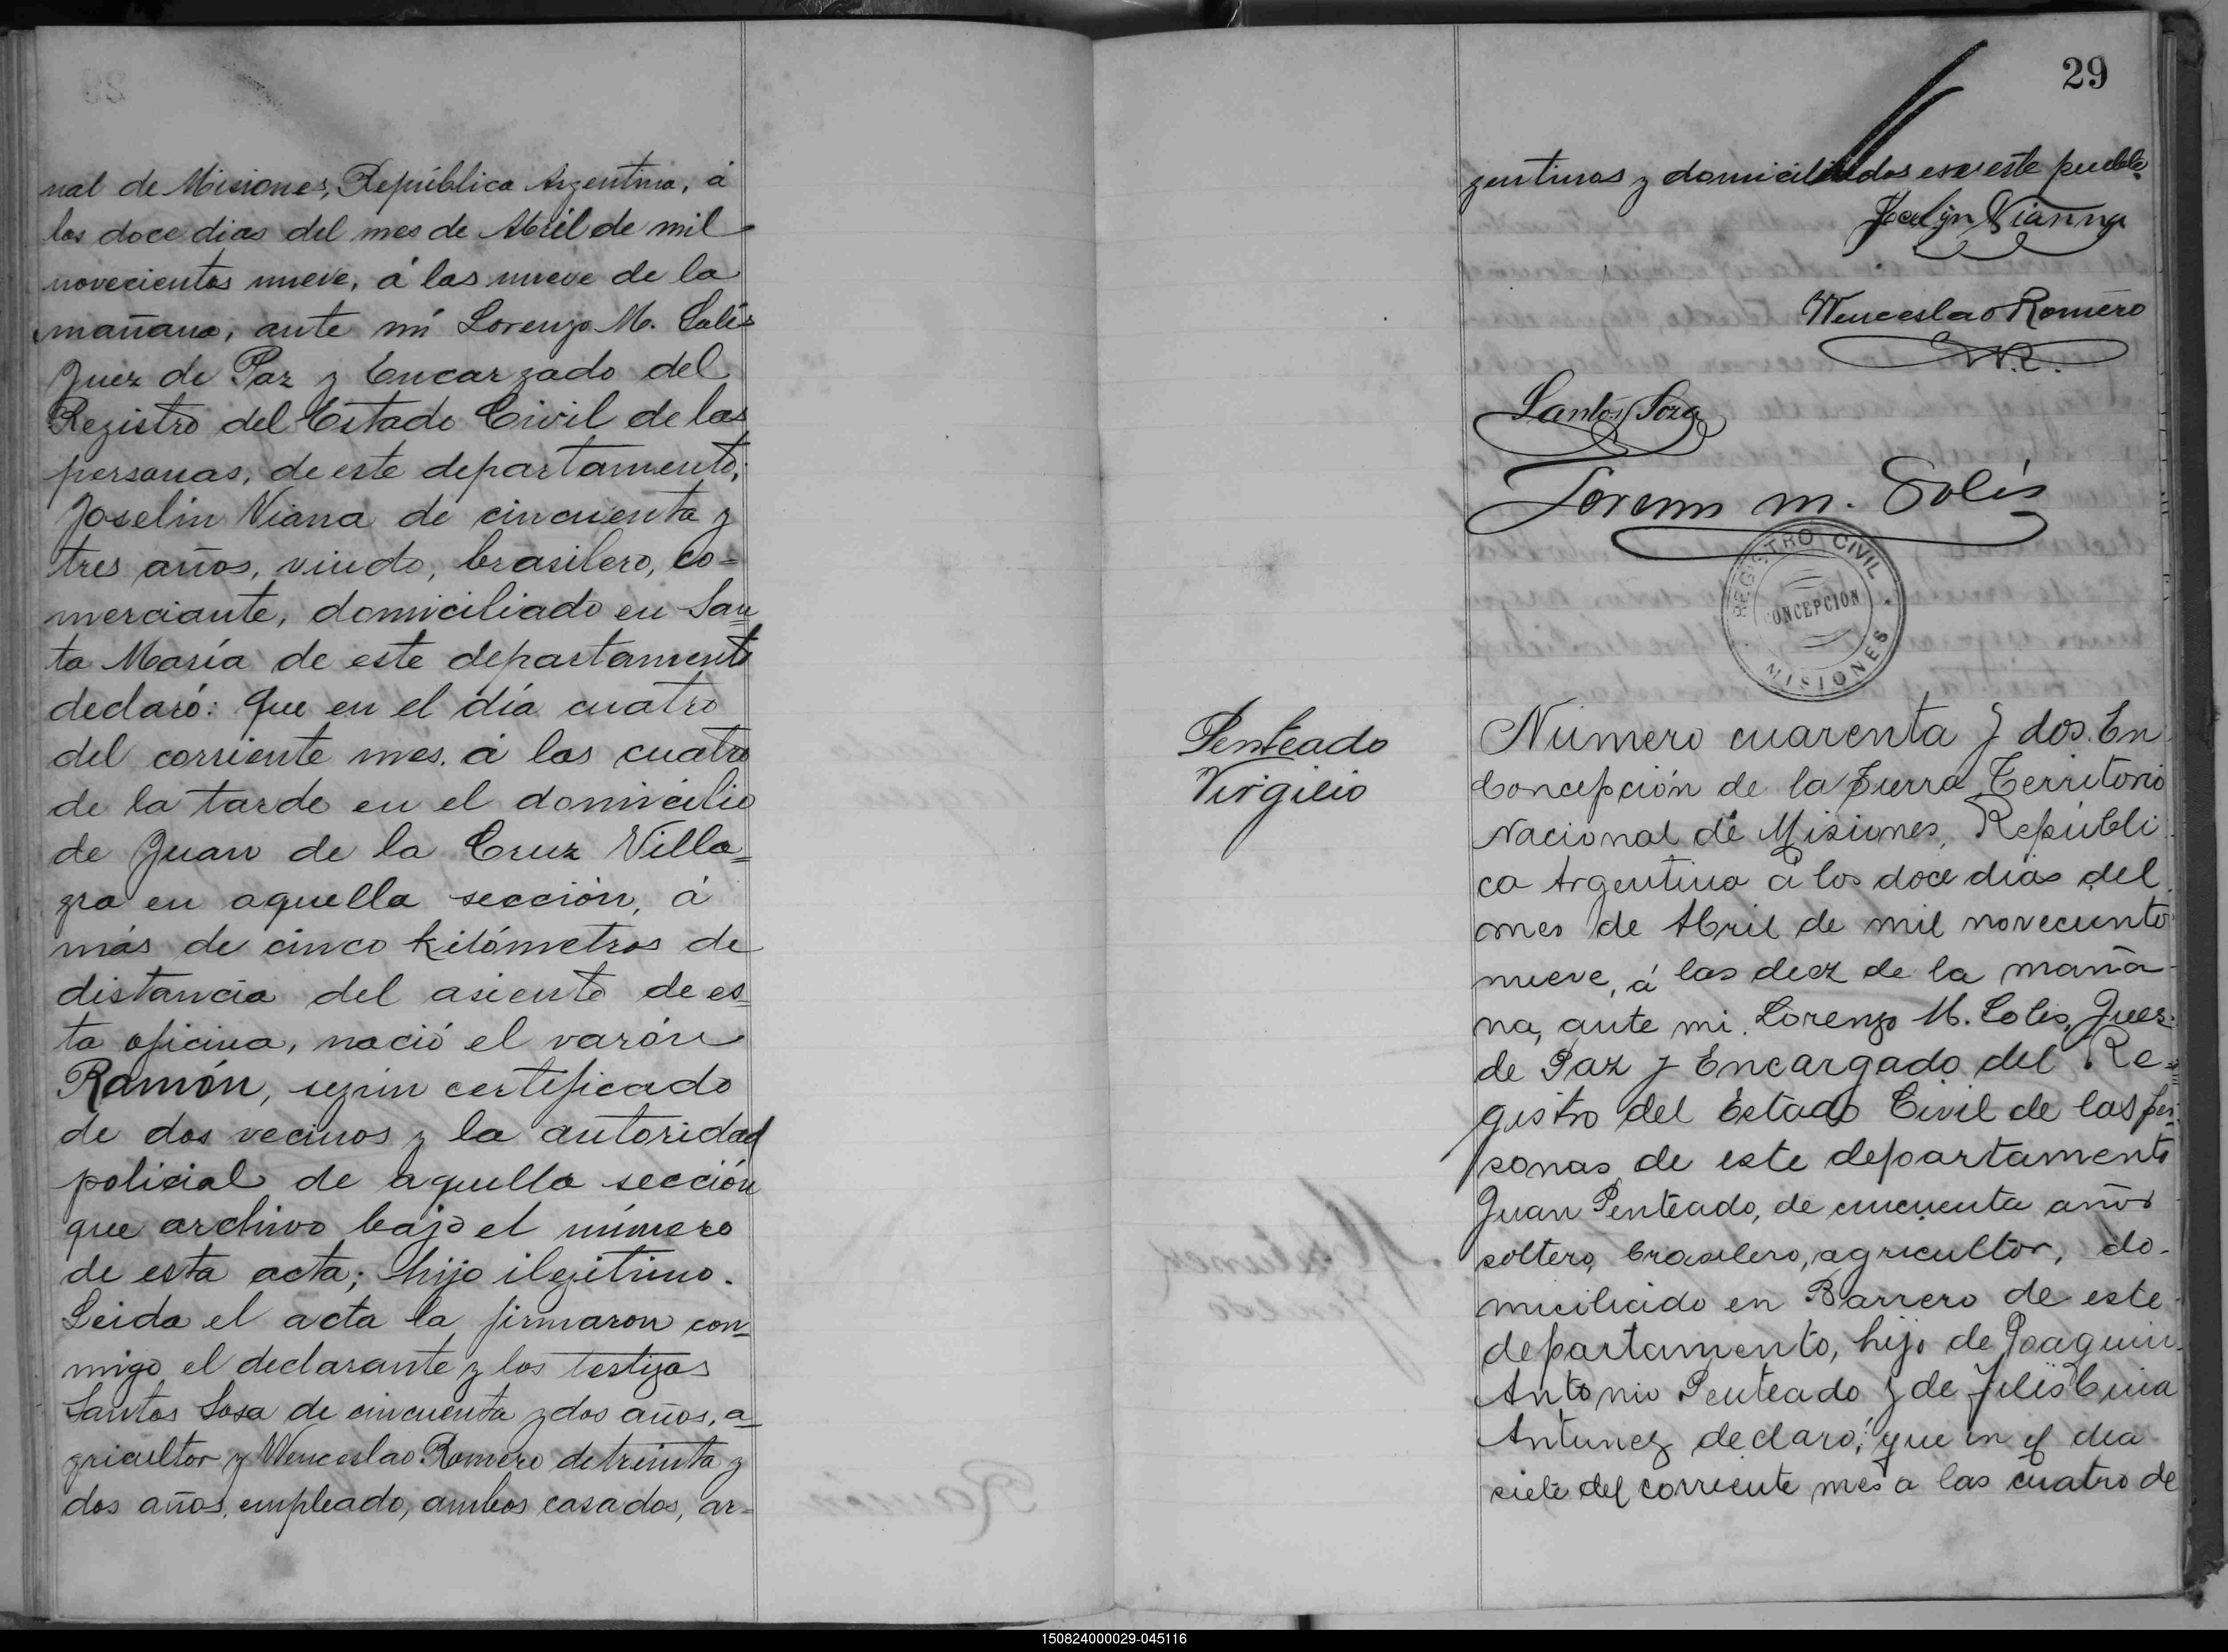 nal de Misiones, República Argentina, á
los doce dias del mes de Abril de mil
novecientos nueve, á las nueve de la
mañana, ante mí Lorenzo M. Solis
Juez de Paz y Encargado del
Registro del Estado Civil de las
personas, de este departamento,
Joselin Viana de cincuenta y
tres años, viudo, brasilero, co=
merciante, domiciliado en San
ta María de este departamento
declaró: Que en el día cuatro
del corriente mes. á las cuatro
de la tarde en el domicilio
de Juan de la Cruz Villa=
gra en aquella sección, á
más de cinco kilómetros de
distancia del asiento de es=
ta oficina, nació el varón
Ramón, según certificado
de dos vecinos y la autoridad
policial de aquella sección
que archivo bajo el número
de esta acta; hijo ilegitimo.
Leida el acta la firmaron con=
migo el declarante y los testigos
Santos Sosa de cincuenta y dos años, a=
gricultor y Wenceslao Romero de treinta y
dos años, empleado, ambos casados, ar=
29
gentinos y domiciliados en este pueblo.
Jocelyn Vianna
Wenceslao Romero
W.R.
Santos Soza
Lorenzo M. Solis
REGISTRO CIVIL
CONCEPCION
MISIONES
Penteado
Virgilio
Número cuarenta y dos. En
Concepción de la Sierra Territorio
Nacional de Misiones, Repúbli
ca Argentina á los doce dias del
mes de Abril de mil novecientos
nueve, á las diez de la maña-
na, ante mi. Lorenzo M. Solis, Juez
de Paz y Encargado del Re=
gistro del Estado Civil de las per=
sonas de este departamento
Juan Penteado, de cincuenta años
soltero, brasilero, agricultor, do-
miciliado en Barrero de este
departamento, hijo de Joaquin
Antonio Penteado y de
Antunez declaró; que en el dia
siete del corriente mes a las cuatro de
150824000029-045116